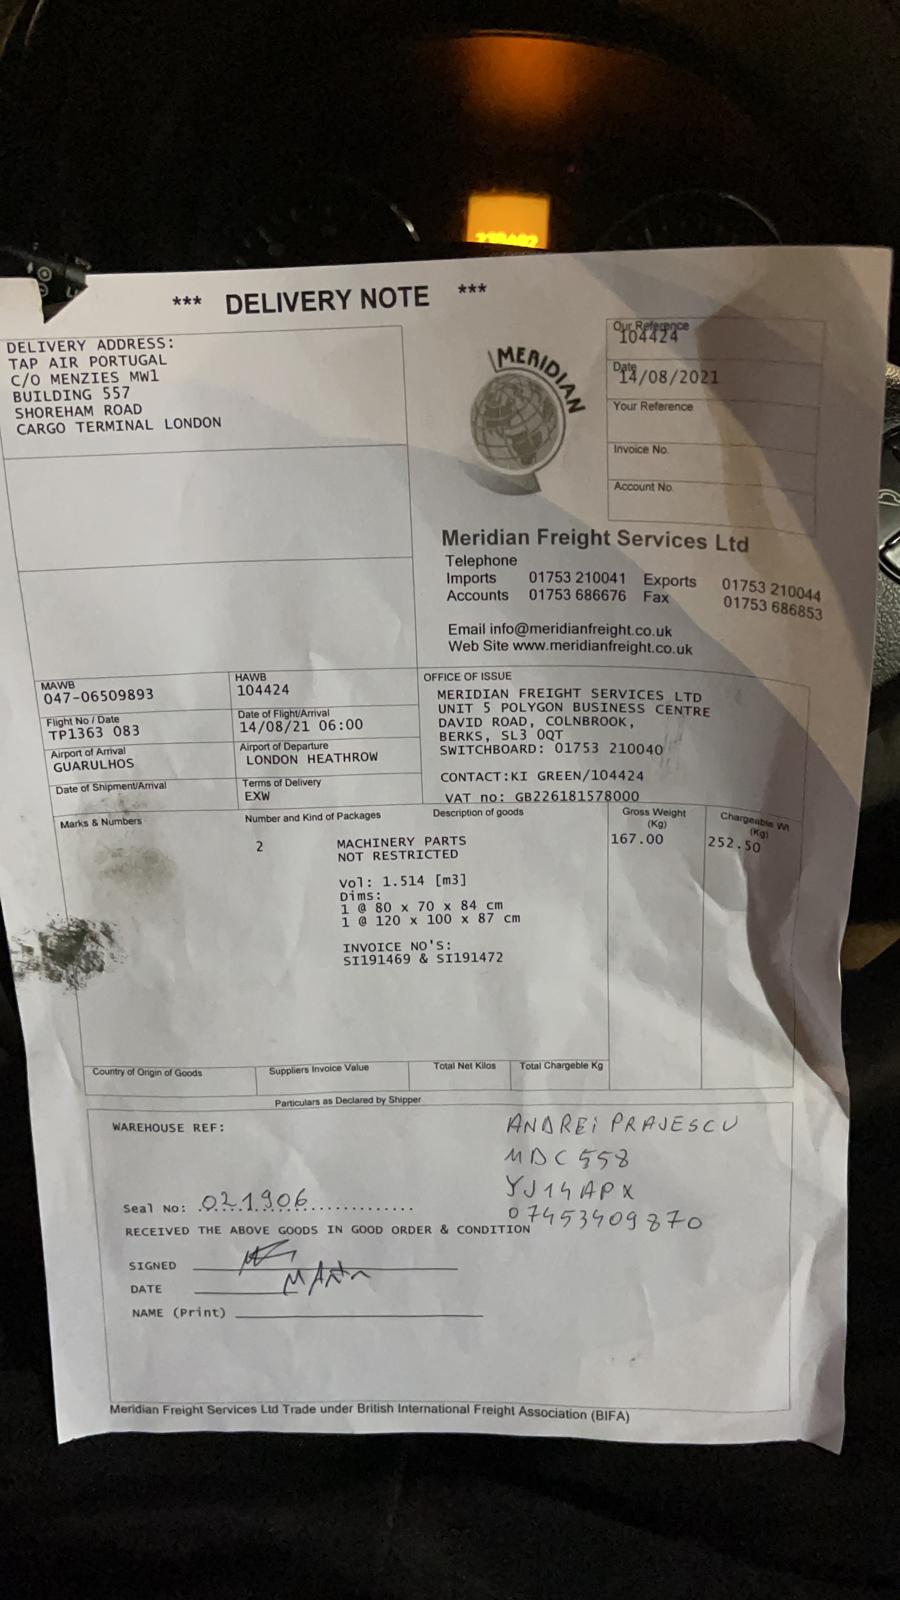 *** DELIVERY NOTE ***
DELIVERY ADDRESS:
TAP AIR PORTUGAL
C/O MENZIES MW1
BUILDING 557
SHOREHAM ROAD
CARGO TERMINAL LONDON
MERIDIAN
Our Reference
104424
Date
14/08/2021
Your Reference
Invoice No.
Account No.
Meridian Freight Services Ltd
Telephone
Imports 01753 210041 Exports 01753 210044
Accounts 01753 686676 Fax 01753 686853
Email info@meridianfreight.co.uk
Web Site www.meridianfreight.co.uk
MAWB
047-06509893
HAWB
104424
Flight No / Date
TP1363 083
Date of Flight/Arrival
14/08/21 06:00
Airport of Arrival
GUARULHOS
Airport of Departure
LONDON HEATHROW
Date of Shipment/Arrival
Terms of Delivery
EXW
OFFICE OF ISSUE
MERIDIAN FREIGHT SERVICES LTD
UNIT 5 POLYGON BUSINESS CENTRE
DAVID ROAD, COLNBROOK,
BERKS, SL3 0QT
SWITCHBOARD: 01753 210040
CONTACT:KI GREEN/104424
VAT no: GB226181578000
Marks & Numbers Number and Kind of Packages Description of goods Gross Weight (Kg) Chargeable Wt (Kg)
2 MACHINERY PARTS 167.00 252.50
NOT RESTRICTED
Vol: 1.514 [m3]
Dims:
1 @ 80 x 70 x 84 cm
1 @ 120 x 100 x 87 cm
INVOICE NO'S:
SI191469 & SI191472
Country of Origin of Goods Suppliers Invoice Value Total Net Kilos Total Chargeble Kg
Particulars as Declared by Shipper
WAREHOUSE REF:
ANDREI PRAJESCU
MDC 558
YJ14APX
07453409870
Seal No: 021906
RECEIVED THE ABOVE GOODS IN GOOD ORDER & CONDITION
SIGNED
DATE
NAME (Print)
Meridian Freight Services Ltd Trade under British International Freight Association (BIFA)